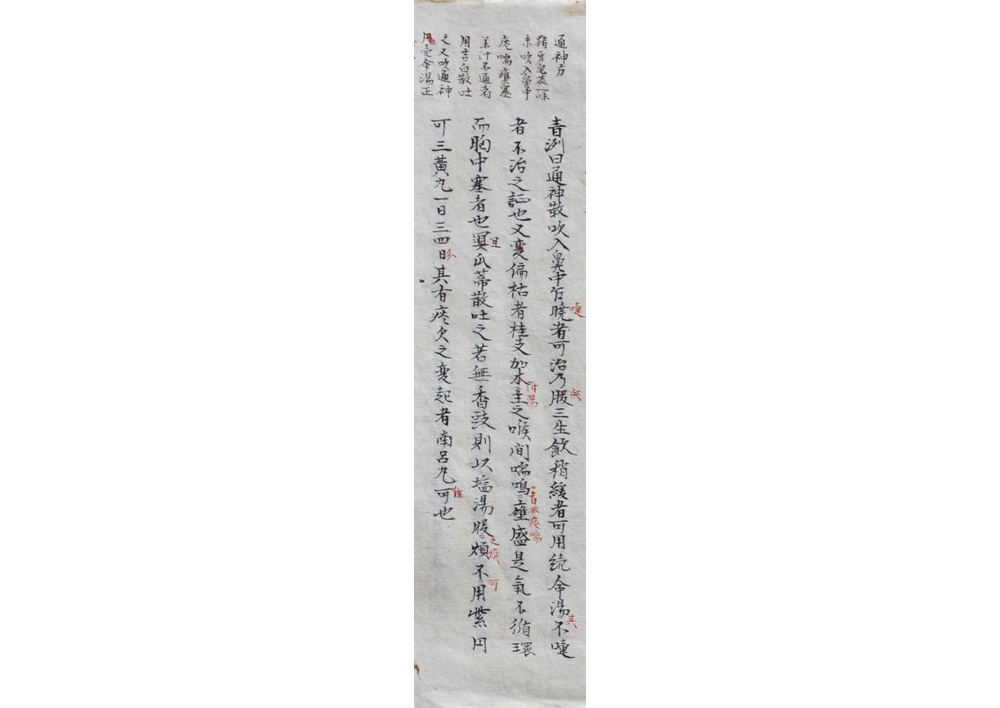 通神方
猪牙皂莢一味
末吹入鼻中
痰喘壅塞
姜汁不通者
用吉白散吐
之又吹通神
用壳命湯正
青洌曰通神散吹入鼻中乍曉者可治乃服三生飲稍緩者可用統命湯不嚏
嚏
無
其
者不治之証也又変偏枯者桂支加朮主之喉间喘鳴壅盛是氣不循環
附湯
而胸中塞者也瓜蒂散吐之若無香豉則以塩湯服煩不用紫円
宜
之
可
可三黄丸一日三四日其有痰欠之変起者南呂丸可也
分